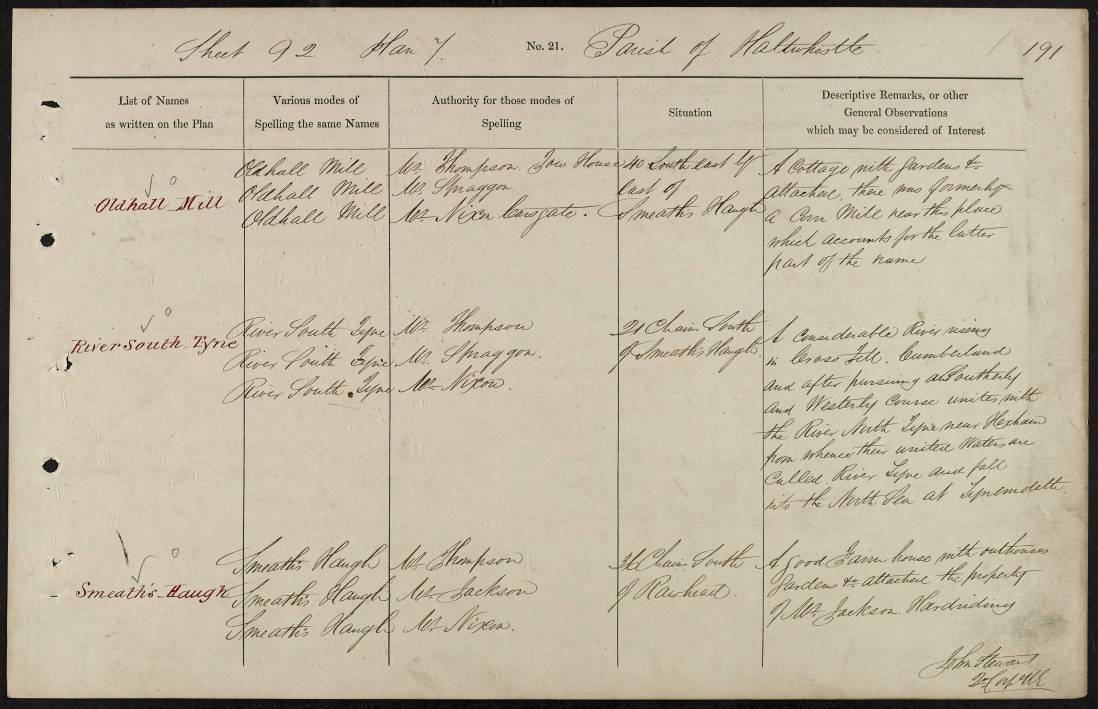 Sheet 92 Plan 7. No. 21. Parish of Haltwhistle 191
List of Names
as written on the Plan
Various modes of
Spelling the same Names
Authority for those modes of
Spelling
Situation
Descriptive Remarks, or other
General Observations
which may be considered of Interest
Oldhall Mill
Oldhall Mill
Oldhall Mill
Oldhall Mill
Mr. Thompson. Tow House
Mr. Smaggon.
Mr. Nixon
40 South east by
East of
Smeath's Haugh
A Cottage with gardens &c
attached, there was formerly
a Corn Mill near this place
which accounts for the latter
part of the name
River South Tyne
River South Tyne
River South Tyne
River South Tyne
Mr. Thompson
Mr. Smaggon.
Mr. Nixon.
Chains South
of Smeath's Haugh.
A considerable River rising
in Cross Fell. Cumberland
and after pursuing a Southerly
and Westerly Course unites with
the River North Tyne near Hexham
from whence their united Waters are
Called River Tyne and fall
into the North Sea at Tynemouth
Smeath's Haugh
Smeath's Haugh
Smeath's Haugh
Smeath's Haugh
Mr. Thompson
Mr. Jackson
Mr. Nixon.
Chains South
of Rawhead.
A good Farm house with outhouses
Gardens &c attached the property
of Mr. Jackson Hardriding
John Stewart
2nd Corpl RE